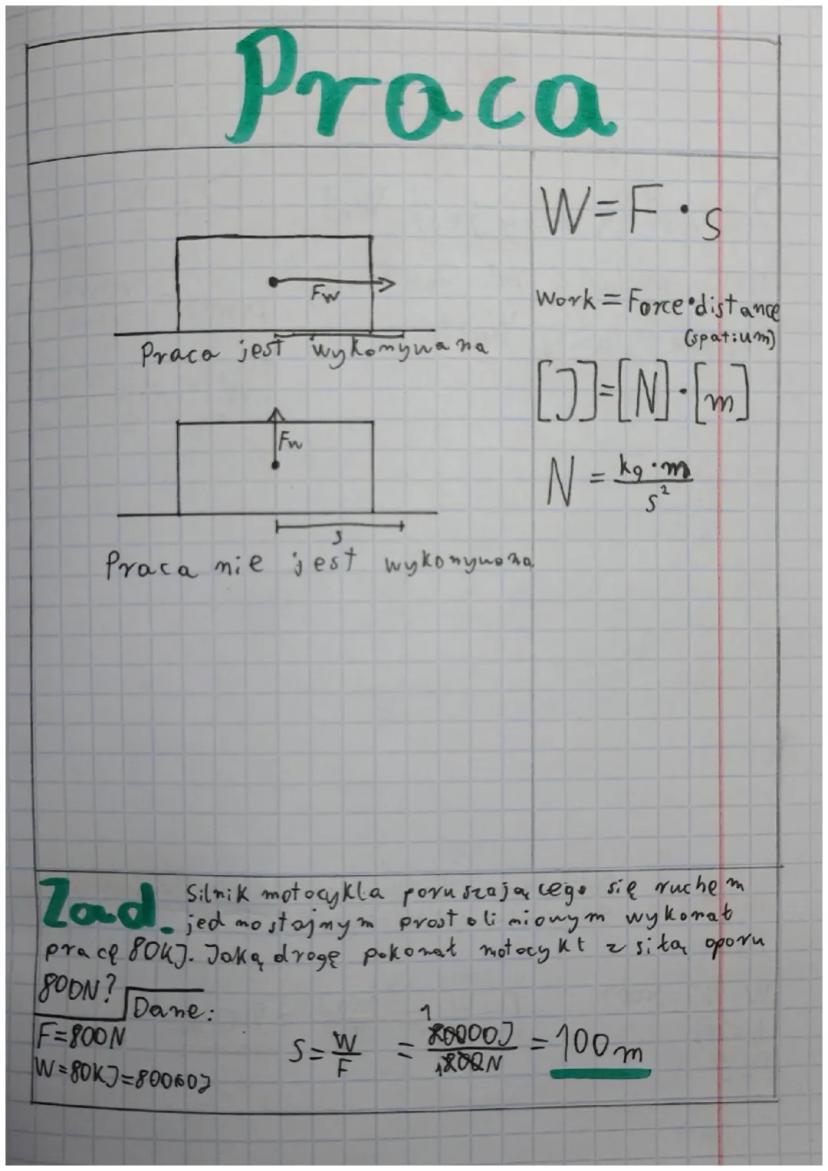 Praca
W=F·s
Fw
Work = Force·distance
(spatium)
Praca jest wykonywana
[J]=[N]·[m]
Fw
N = kg·m/s²
s
Praca nie jest wykonywana
Zad. Silnik motocykla poruszającego się ruchem
jednostajnym prostoliniowym wykonał
pracę 80kJ. Jaką drogę pokonał motocykl z siłą oporu
800N?
Dane:
F=800N
W=80KJ=80000J
S = W/F = 80000J/800N = 100m